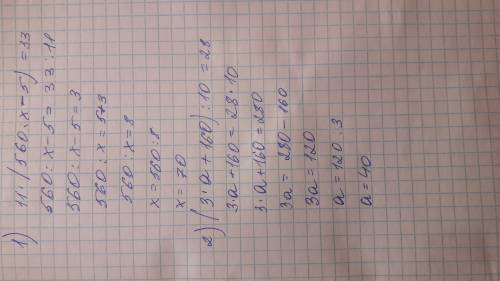 1)
11·(560:x-5)=33
560:x-5=33:11
560:x-5=3
560:x=5+3
560:x=8
x=560:8
x=70
2)(3·a+160):10=28
3·a+160=28·10
3·a+160=280
3a=280-160
3a=120
a=120:3
a=40